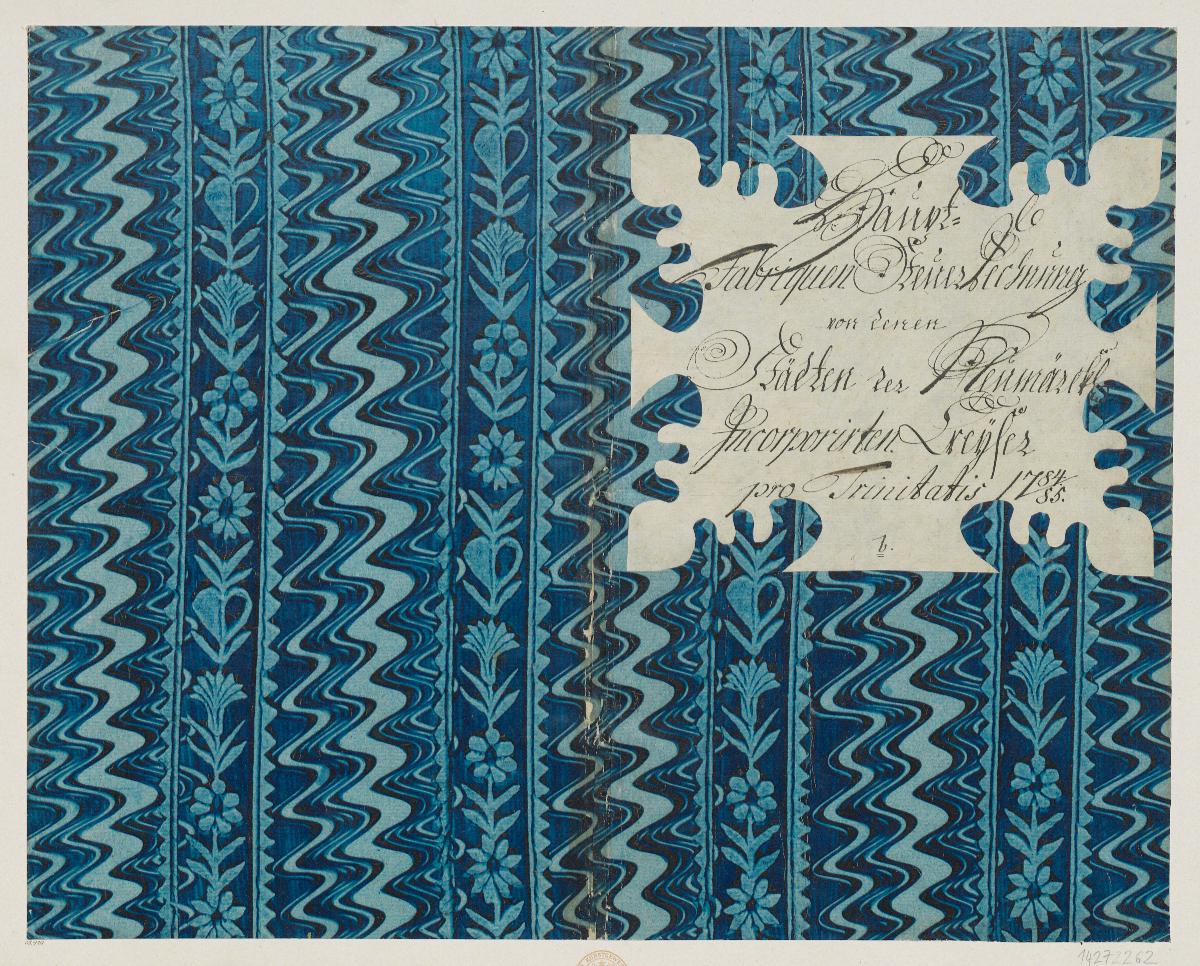 Haupt=
Fabriquen Steuer Rechnung
von denen
Städten der Neumärckl.
Incorporirten Creyser
pro Trinitatis 1784/85.
b.
14272262